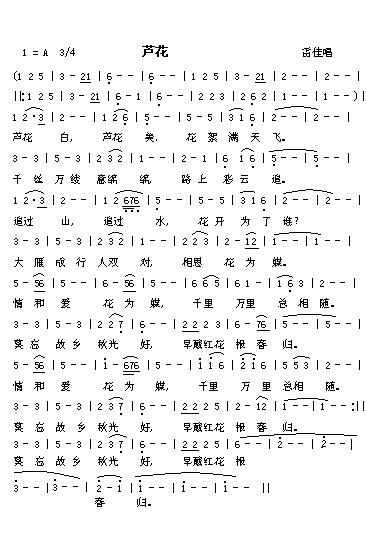 1 = A 3/4 芦花 雷佳唱
(1 2 5 | 3 - 21 | 6 - - | 6 - - | 1 2 5 | 3 - 21 | 2 - - | 2 - - |
||: 1 2 5 | 3 - 21 | 6 - 1 | 6 - - | 2 2 3 | 2 - 1 | 1 - - | 1 - - )|
1 2·3 | 2 - - | 1 2 6 | 5 - - | 5 - 5 | 3 1 6 | 2 - - | 2 - - |
芦花 白, 芦花 美, 花 絮 满 天 飞。
3 - 3 | 5 - 3 | 2 3 2 | 1 - - | 2 - 1 | 6 1 6 | 5 - - | 5 - - |
千 丝 万 线 意绵 绵, 路 上 彩 云 追。
1 2·3 | 2 - - | 1 2 676 | 5 - - | 5 - 5 | 3 1 6 | 2 - - | 2 - - |
追过 山, 追过 水, 花 开 为 了 谁?
3 - 3 | 5 - 3 | 2 3 2 | 1 - - | 2 2 3 | 2 - 12 | 1 - - | 1 - - |
大 雁 成 行 人双 对, 相思 花 为 媒。
5 - 56 | 5 - - | 6 - 56 | 5 - - | 5 6 5 | 6 1 - | 1 6 3 | 2 - - |
情 和 爱 花 为 媒, 千里 万里 总 相 随。
3 - 3 | 5 - 3 | 2 2 7 | 6 - - | 2 2 2 5 | 3 2 3 | 6 - 76 | 5 - - | 5 - - |
莫 忘 故 乡 秋光 好, 早戴红花 报 春 归。
5 - 56 | 5 - - | 1 - 676 | 5 - - | 1 1 6 | 2 1 6 | 5 5 3 | 2 - - |
情 和 爱 花 为 媒, 千 里 万 里 总相 随。
3 - 3 | 5 - 3 | 2 3 7 | 6 - - | 2 2 2 5 | 2 - 12 | 1 - - | 1 - - :||
莫 忘 故 乡 秋光 好, 早戴红花 报 春 归。
3 - 3 | 5 - 3 | 2 3 7 | 6 - - | 2 2 2 5 | 6 - - | 2 - - | 2 - - |
莫 忘 故 乡 秋光 好, 早戴红花 报
3 - - | 3 - - | 2 - 1 | 1 - - | 1 - - | 1 - - ||
春 归。